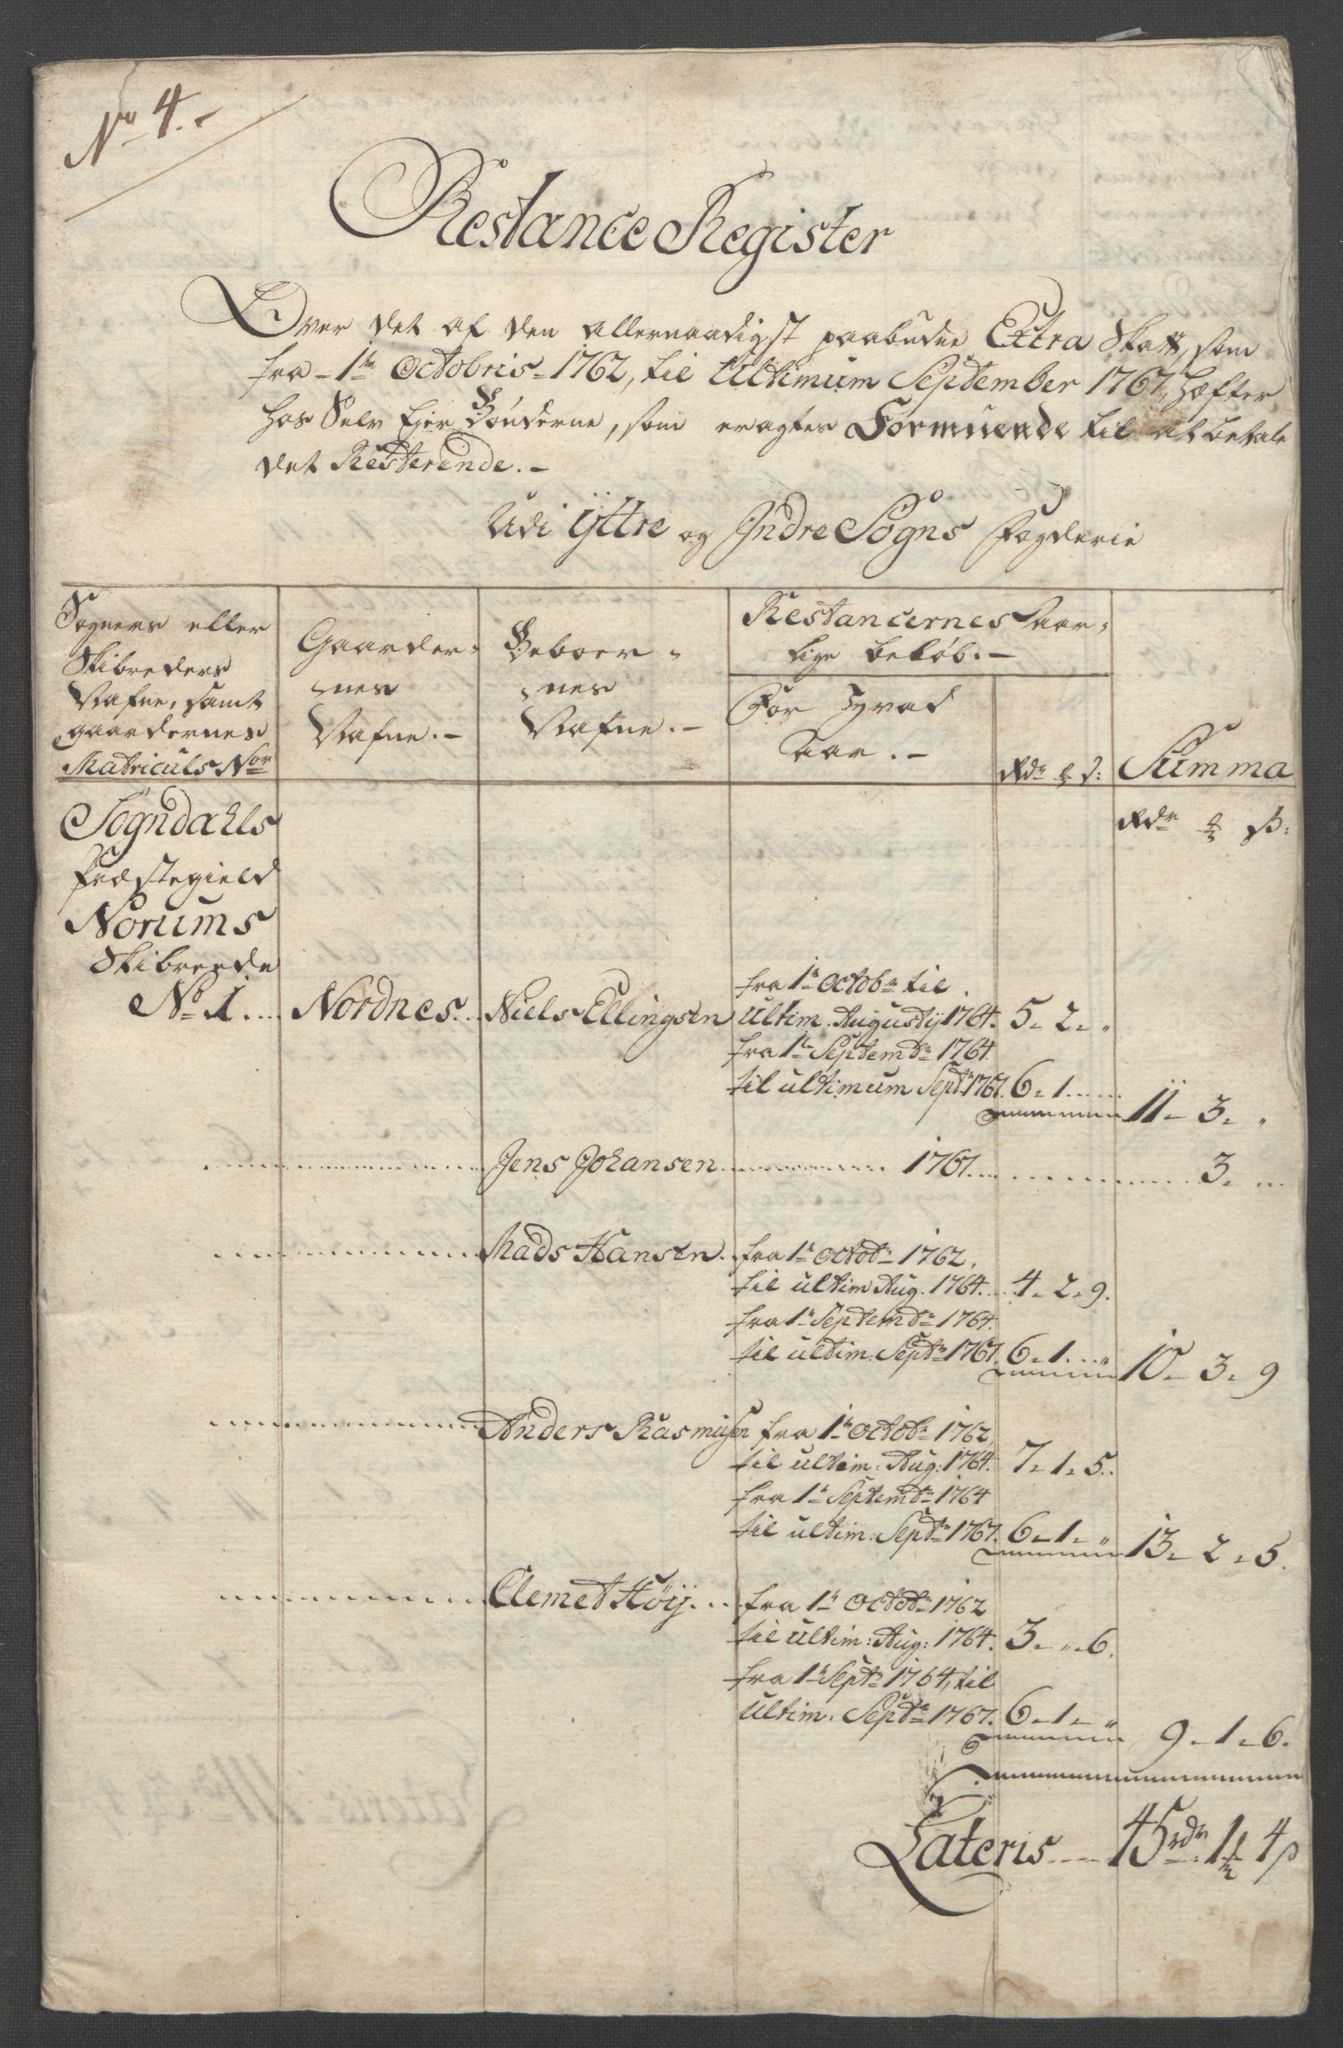 No 4.-
Restance Register
Over det af den allernaadigst paabudne Extra Skatt, som
fra 1te Octobris 1762, til Ultimum September 1767, hæfter
hos Selv Ejer Bønderne, som eragtes Formuende til at betale
det Resterende.-
Udi Yttre og Indre Sogns Fogderie
Sognens eller
Skibreders
Nafne, samt
gaardernes
Matriculs Nor
Gaarder-
nes
Nafne.-
Beboer-
nes
Nafne.-
Restancernes Aar-
lige beløb.-
For hvad
Aar.-
Rdr s:
Summa
Rdr s:
Sogndahls
Præstegield
Norums
Skibreede
No 1... Nordnes.. Niels Ellingsen
fra 1te Octobr til
Ultim. Augustij 1764. 5- 2- "
fra 1te Septembr 1764
til ultimum Sept: 1767. 6- 1 ..... 11- 3- "
Jens Johansen ........ 1767 ........ 3- ...
Mads Hansen. fra 1te Octobr 1762,
til ultim Aug. 1764.... 4- 2- 9.
fra 1te Septembr 1764.
til ultim: Septr 1767. 6- 1..." 10- 3- 9
Anders Rasmusen fra 1te Octobr 1762,
til ultim: Aug: 1764. 7- 1- 5.
fra 1te Septembr 1764
til ultim: Septr 1767. 6- 1- " 13- 2- 5.
Clemet Høij... fra 1te Octobr 1762
til ultim: Aug: 1764. 3- " - 6.
fra 1te Septr 1764, til
Ultim: Septbr 1767. 6- 1- " 9- 1- 6.
Lateris .... 45 rdr 1 4 s